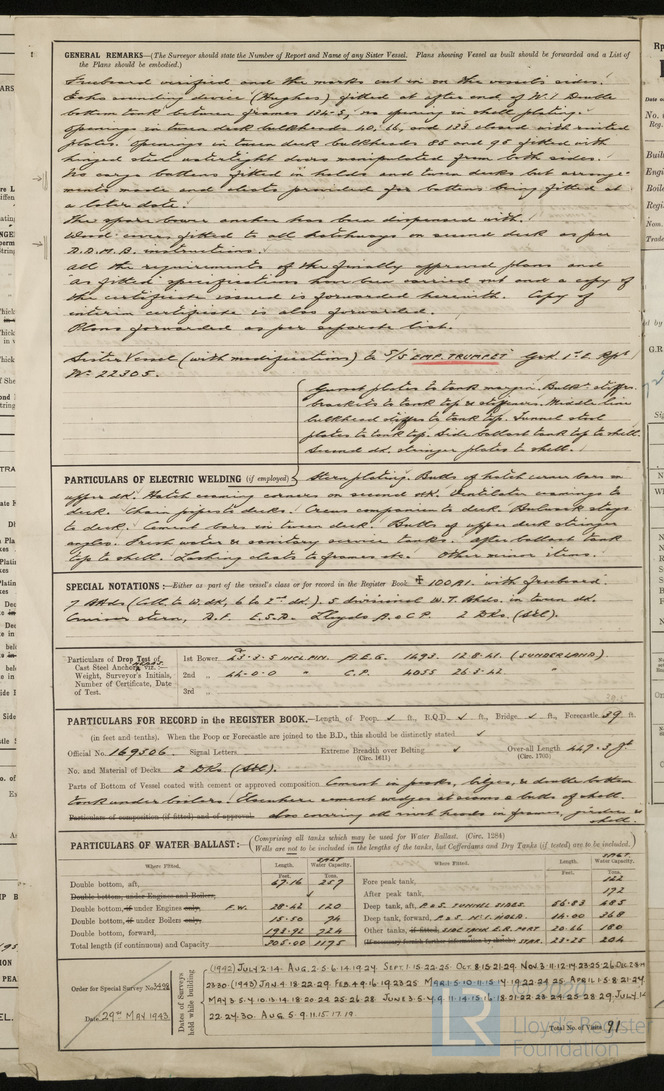 GENERAL REMARKS—(The Surveyor should state the Number of Report and Name of any Sister Vessel. Plans showing Vessel as built should be forwarded and a List of
the Plans should be embodied.)
Freeboard verified and the marks cut in on the vessel's sides.
Echo sounding device (Hughes) fitted at after end of No. 1 Double
bottom tank between frames 134-5, no opening in shell plating.
Openings in tween deck bulkheads 40, 66, and 133 closed with riveted
plates. Openings in tween deck bulkheads 85 and 98 fitted with
hinged steel watertight doors manipulated from both sides.
No cargo battens fitted in holds and tween decks but arrange-
ments made and cleats provided for battens being fitted at
a later date.
The spare bower anchor has been dispensed with.
Wood covers fitted to all hatchways on second deck as per
D.D.M.B. instructions.
All the requirements of the finally approved plans and
as fitted specifications have been carried out and a copy of
the certificate issued is forwarded herewith. Copy of
interim certificate is also forwarded.
Plans forwarded as per separate list.
Sister Vessel (with modifications) to S/S EMP. TRUMPET Grk. 1st E. Rpt
No. 22305.
Gusset plates to tank margin. Bulkd. stiffs.
brackets to tank top & stiffeners. Middle line
bulkhead stiffs to tank top. Tunnel steel
plates to tank top. Side ballast tank top to shell.
Second dk. stringer plates to shell.
PARTICULARS OF ELECTRIC WELDING (if employed) Stern plating. Butts of hatch corner bars on
upper dk. Hatch coaming corners on second dk. Ventilator coamings to
deck. Chain pipes to decks. Crews companion to deck. Bulwark stays
to deck. Cement bars in tween deck. Butts of upper deck stringer
angles. Fresh water & sanitary service tanks. After ballast tank
top to shell. Lashing cleats to frames etc. Other minor items.
SPECIAL NOTATIONS:—Either as part of the vessel's class or for record in the Register Book. ✠ 100A1. with freeboard.
7 Bhds (Coll. to U. dk, 6 to 2nd dk.) 5 divisional W.T. Bhds. in tween dk.
Cruiser stern, D.F. E.S.D. Lloyds A & C.P. 2 Dks. (Stl).
Particulars of Drop Test of
Cast Steel Anchors, viz.:—
Weight, Surveyor's Initials,
Number of Certificate, Date
of Test.
1st Bower 43-3-5 INCL. PIN. A.E.G. 1493 12.8.41. (SUNDERLAND).
2nd " 44-0-0 " C.P. 4055 26.3.42 "
3rd
PARTICULARS FOR RECORD in the REGISTER BOOK.—Length of Poop ft., R.Q.D. ft., Bridge ft., Forecastle 39 ft.
(in feet and tenths). When the Poop or Forecastle are joined to the B.D., this should be distinctly stated
Official No. 169506 Signal Letters Extreme Breadth over Belting Over-all Length 447.3 ft
(Circ. 1611) (Circ. 1703)
No. and Material of Decks 2 Dks. (Stl).
Parts of Bottom of Vessel coated with cement or approved composition Cement in peaks, bilges, & double bottom
tank under boilers. Elsewhere cement wedges at seams & butts of shell.
Particulars of composition (if fitted) and of approval. also covering all rivet heads in frames, girders &
shell.
PARTICULARS OF WATER BALLAST:—(Comprising all tanks which may be used for Water Ballast. (Circ. 1284)
Wells are not to be included in the lengths of the tanks, but Cofferdams and Dry Tanks (if tested) are to be included.)
Where Fitted. Length. SALT Water Capacity. Where Fitted. Length. SALT Water Capacity.
Feet. Tons. Feet. Tons.
Double bottom, aft, 67.16 257 Fore peak tank, 122
Double bottom, under Engines and Boilers, After peak tank, 172
Double bottom, if under Engines only, F.W. 28.42 120 Deep tank, aft, P & S TUNNEL SIDES. 56.83 485
Double bottom, if under Boilers only, 15.50 74 Deep tank, forward, P & S No. 3 HOLD. 14.00 368
Double bottom, forward, 193.92 724 Other tanks, if fitted, SIDE TANK E.R. PORT 20.66 180
Total length (if continuous) and Capacity 305.00 1175 (If necessary furnish further information by sketch) STAR. 23.25 204
Order for Special Survey No. 3498
Date 29th MAY 1943
Dates of Surveys
held while building
(1942) JULY 2.14. AUG. 2.5.6.14.19.27. SEPT. 1.15.22.25 OCT. 8.15.21.29. NOV. 3.11.12.17.23.25.26 DEC. 2.8.14
23.30. (1943) JAN. 4.18.22.29. FEB. 4.9.16.19.23.25 MAR. 1.5.10.11.15.17.19.22.24.25 APRIL 1.5.8.21.27
MAY 3.5.7.10.13.14.18.20.24.25.26.28 JUNE 3.5.7.9.11.14.15.16.18.21.22.23.24.25.28.29. JULY 14
22.27.30. AUG. 5.9.11.15.17.19.
Total No. of Visits 91
LR
Lloyd's Register
Foundation